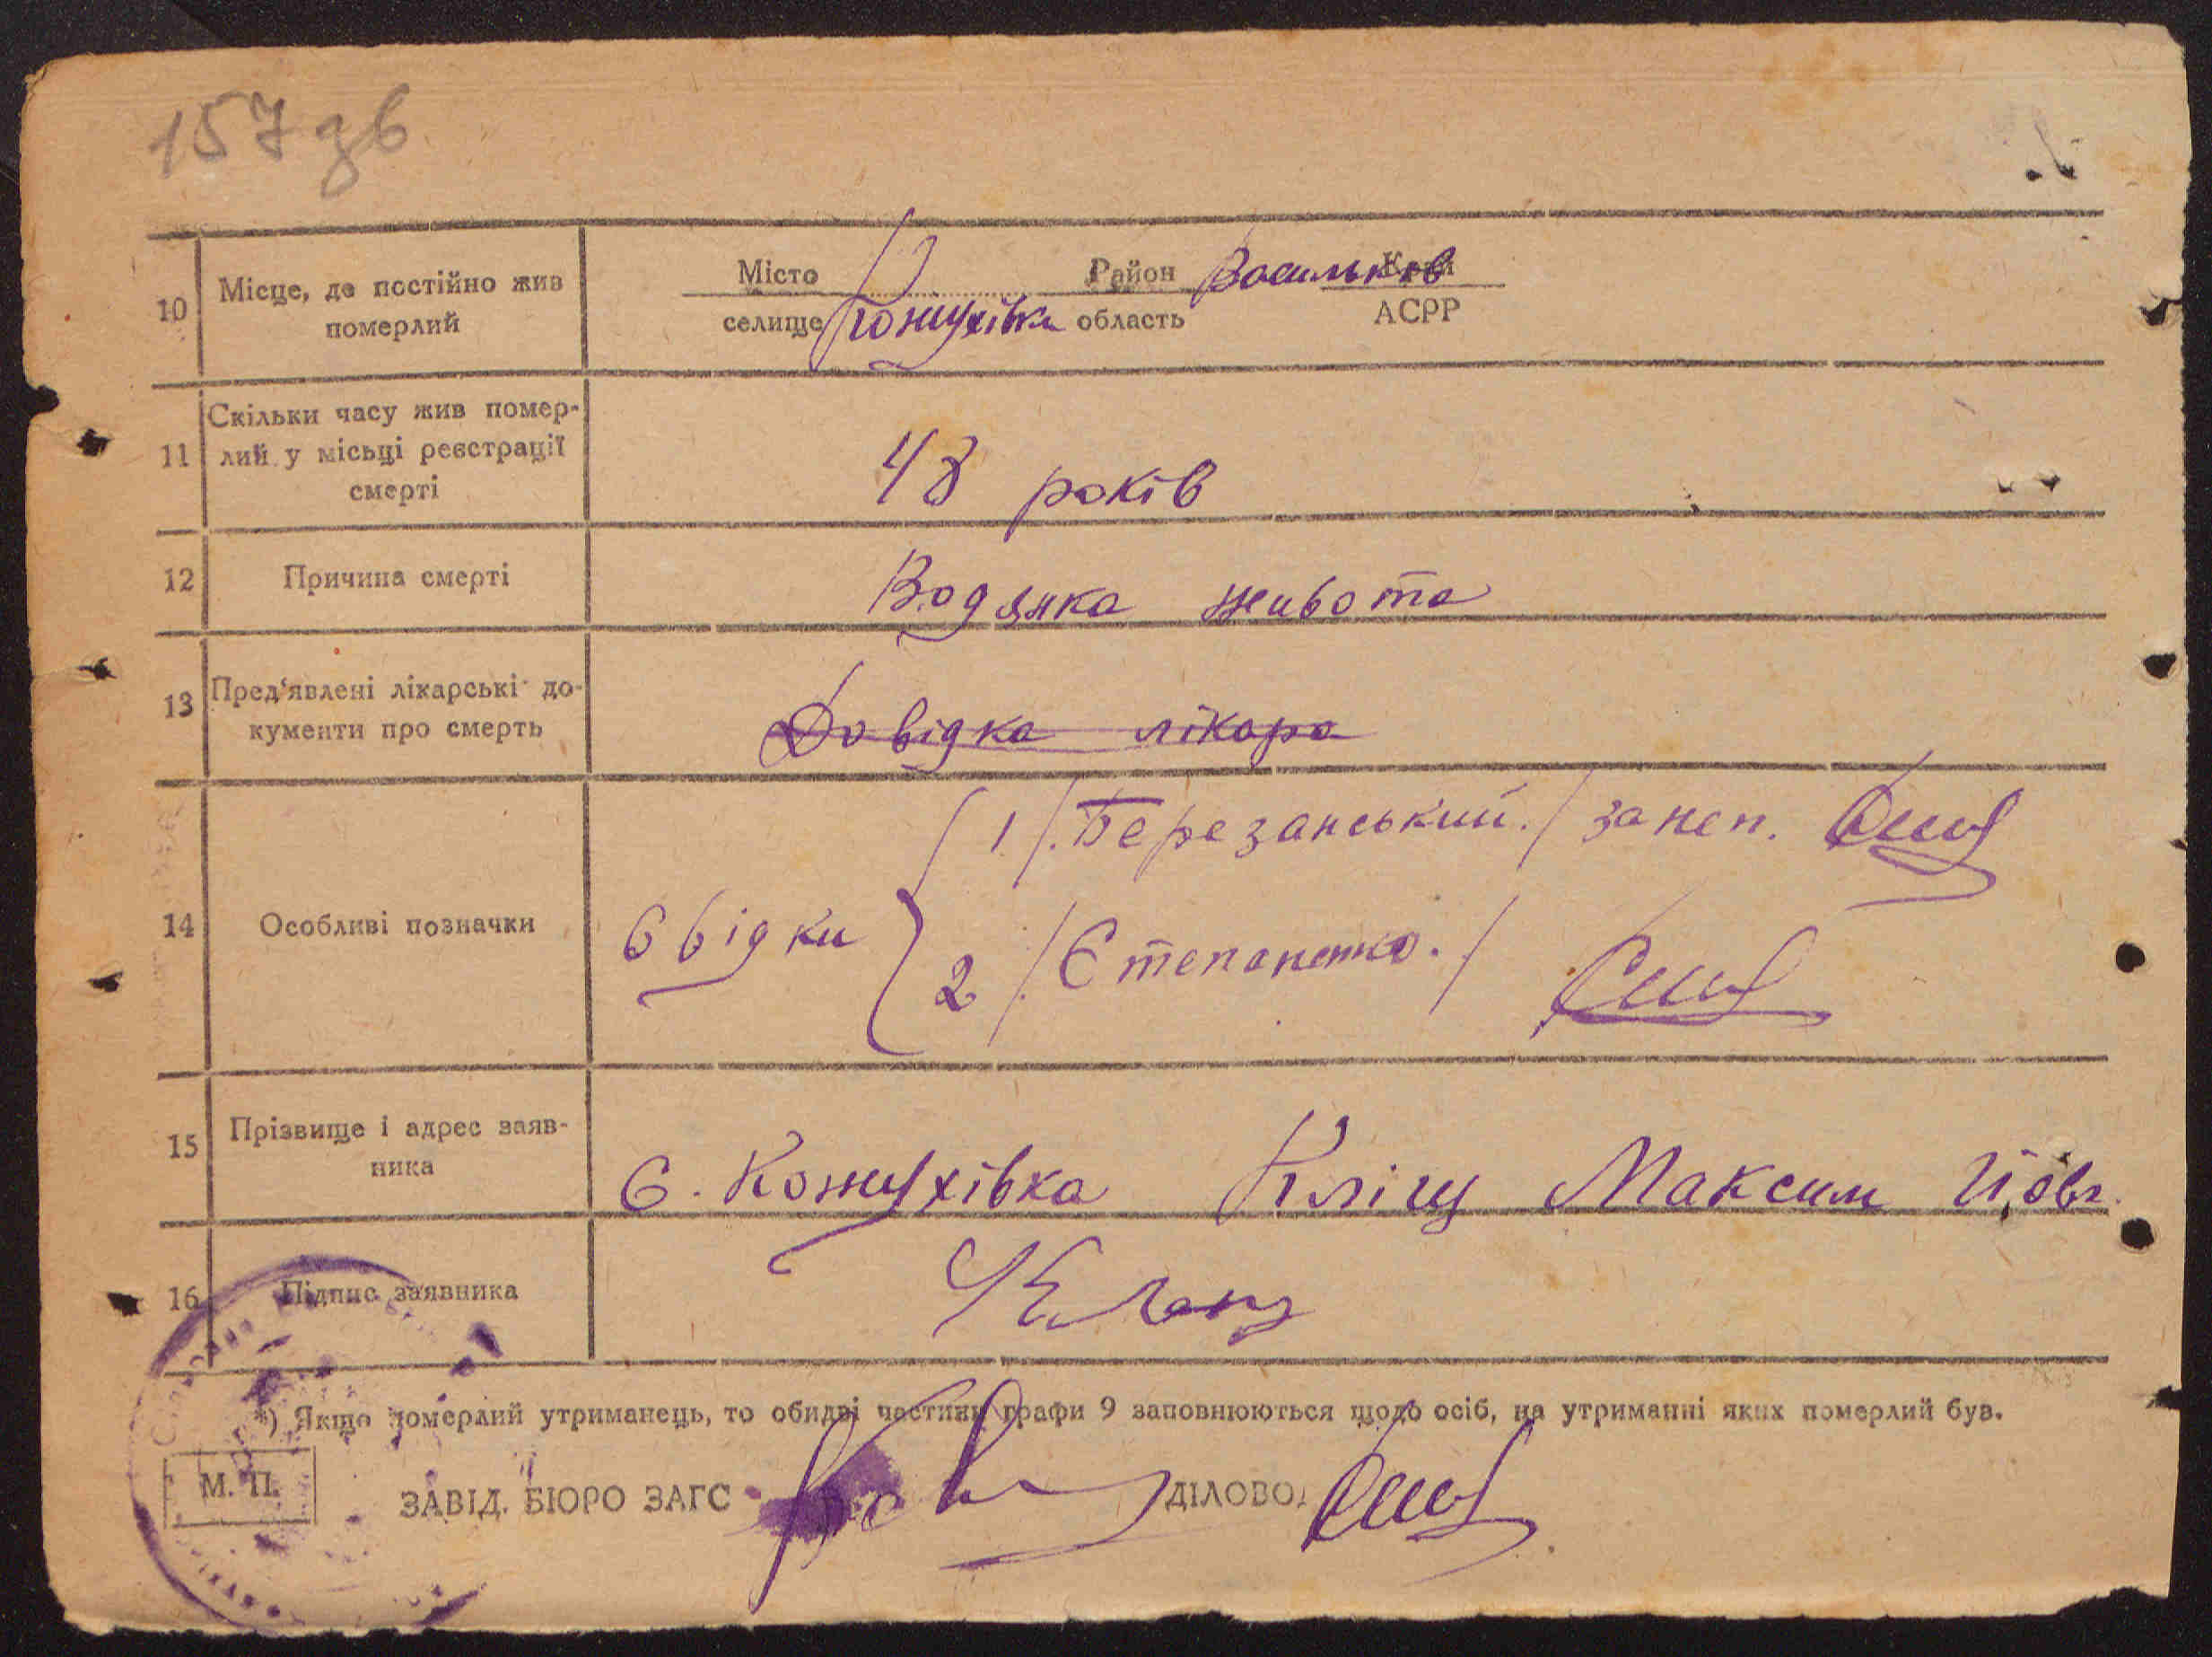 157 зв
10 Місце, де постійно жив померлий
Місто Район Васильків Край
селище Кожухівка область АСРР
11 Скільки часу жив помер-
лий у місьці реєстрації
смерті
48 років
12 Причина смерті Водянка живота
13 Пред'явлені лікарські до-
кументи про смерть
Довідка лікара
14 Особливі позначки
Свідки
1/. Березанський./ за неп.
2/. Степаненко./
15 Прізвище і адрес заяв-
ника
С. Кожухівка Кліщ Максим Йов.
16 Підпис заявника
*) Якщо померлий утриманець, то обидві частини графи 9 заповнюються щодо осіб, на утриманні яких померлий був.
М. П.
ЗАВІД. БЮРО ЗАГС ДІЛОВОД